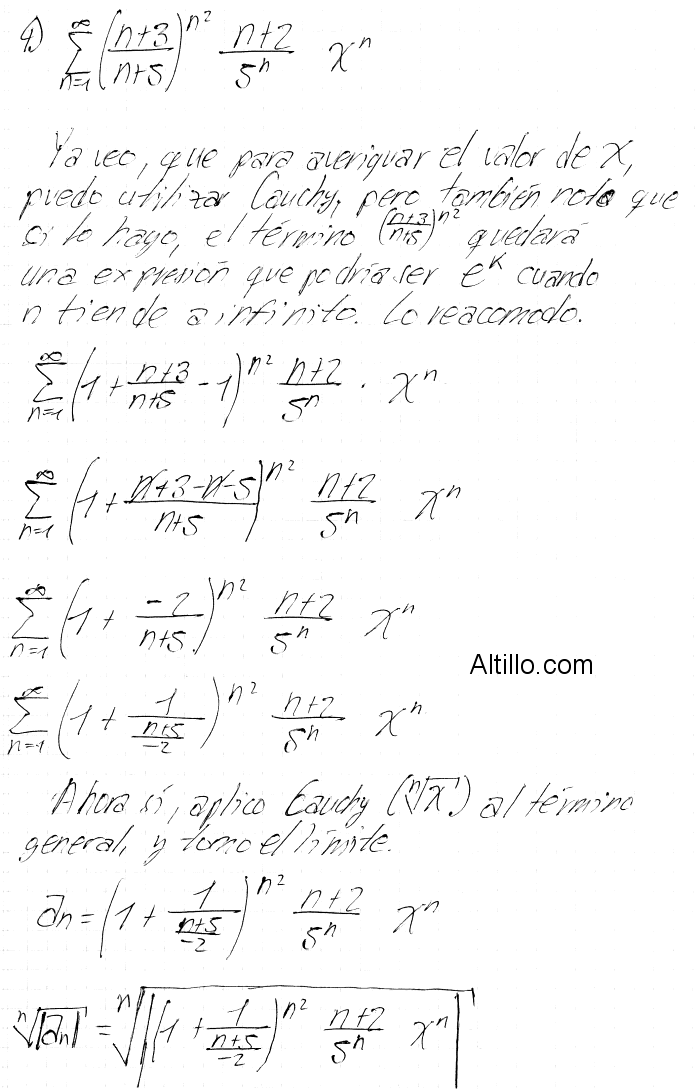 4) ∑_{n=1}^{∞} ((n+3)/(n+5))^{n²} (n+2)/5ⁿ xⁿ
Ya veo, que para averiguar el valor de x,
puedo utilizar Cauchy, pero también noto que
si lo hago, el término ((n+3)/(n+5))^{n²} quedará
una expresión que podría ser e^k cuando
n tiende a infinito. Lo reacomodo.
∑_{n=1}^{∞} (1 + (n+3)/(n+5) - 1)^{n²} (n+2)/5ⁿ · xⁿ
∑_{n=1}^{∞} (1 + (n+3-n-5)/(n+5))^{n²} (n+2)/5ⁿ xⁿ
∑_{n=1}^{∞} (1 + (-2)/(n+5))^{n²} (n+2)/5ⁿ xⁿ
Altillo.com
∑_{n=1}^{∞} (1 + 1/((n+5)/(-2)))^{n²} (n+2)/5ⁿ xⁿ
Ahora sí, aplico Cauchy (ⁿ√x) al término
general, y tomo el límite.
an = (1 + 1/((n+5)/(-2)))^{n²} (n+2)/5ⁿ xⁿ
ⁿ√|an| = ⁿ√|(1 + 1/((n+5)/(-2)))^{n²} (n+2)/5ⁿ xⁿ|